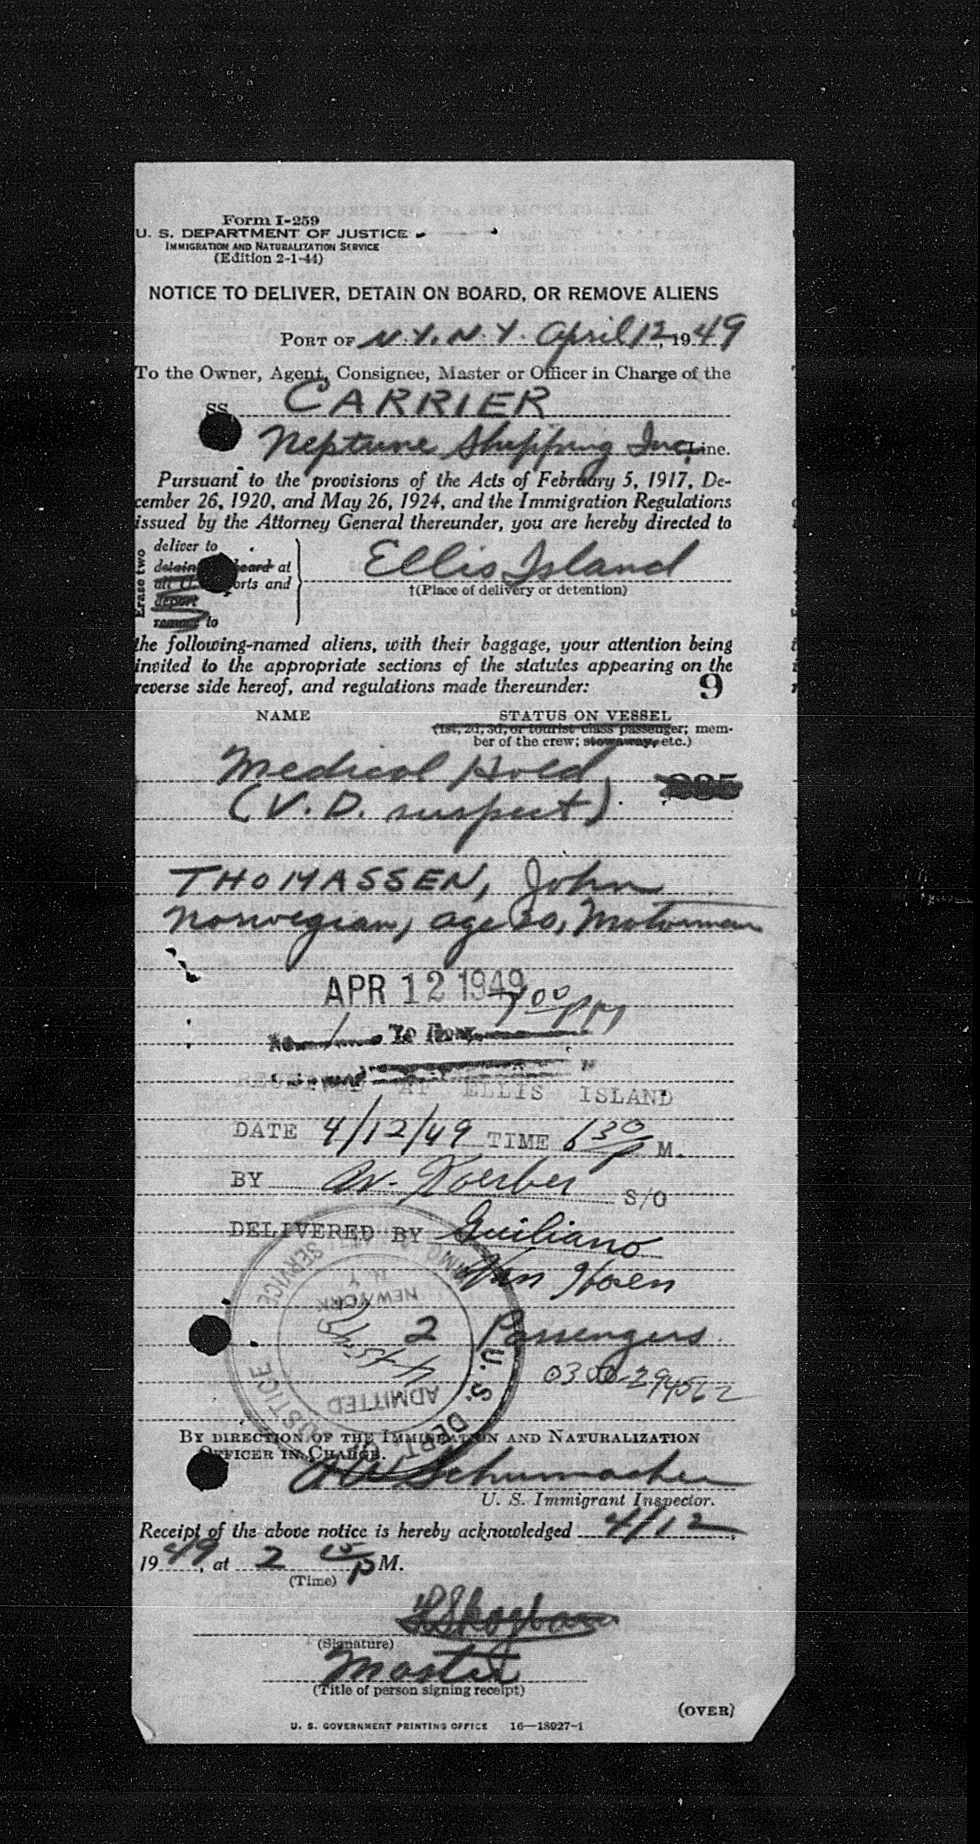 Form I-259
U. S. DEPARTMENT OF JUSTICE
IMMIGRATION AND NATURALIZATION SERVICE
(Edition 2-1-44)
NOTICE TO DELIVER, DETAIN ON BOARD, OR REMOVE ALIENS
PORT OF N.Y. N.Y. April 12, 1949
To the Owner, Agent, Consignee, Master or Officer in Charge of the
SS. CARRIER
Neptune Shipping Inc. Line.
Pursuant to the provisions of the Acts of February 5, 1917, De-
cember 26, 1920, and May 26, 1924, and the Immigration Regulations
issued by the Attorney General thereunder, you are hereby directed to
Erase two
deliver to
detain board at
all U. orts and
deport
remove to
Ellis Island
†(Place of delivery or detention)
the following-named aliens, with their baggage, your attention being
invited to the appropriate sections of the statutes appearing on the
reverse side hereof, and regulations made thereunder:
9
NAME STATUS ON VESSEL
(1st, 2d, 3d, or tourist class passenger; mem-
ber of the crew; stowaway, etc.)
Medical Hold
(V. D. suspect)
THOMASSEN, John
Norwegian, age 20, Motorman
APR 12 1949
7 00 PM
To
AT ELLIS ISLAND
DATE 4/12/49 TIME 6 30 P M.
BY W. Koerber S/O
DELIVERED BY Guiliano
Van Hoen
2 Passengers
0300-294562
U. S. DEPT. OF JUSTICE
SERVICE
NEW YORK
N. Y.
ADMITTED
BY DIRECTION OF THE IMMIGRATION AND NATURALIZATION
OFFICER IN CHARGE.
AW Schumacher
U. S. Immigrant Inspector.
Receipt of the above notice is hereby acknowledged 4/12,
1949, at 2 15 P M.
(Time)
(Signature)
Master
(Title of person signing receipt)
(OVER)
U. S. GOVERNMENT PRINTING OFFICE 16—18927-1